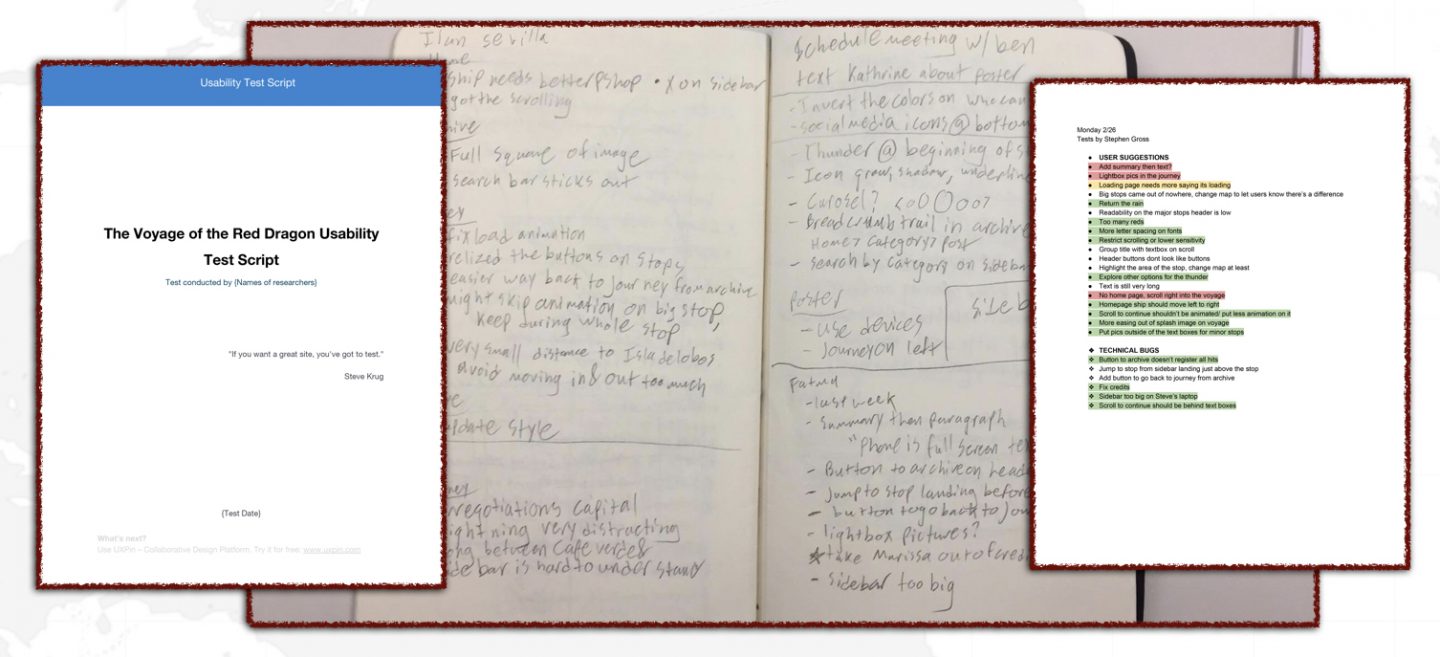 Usability Test Script
The Voyage of the Red Dragon Usability
Test Script
Test conducted by {Names of researchers}
"If you want a great site, you've got to test."
Steve Krug
{Test Date}
What's next?
Use UXPin – Collaborative Design Platform. Try it for free: www.uxpin.com
Ilan sevilla
ship needs better pshop • X on sidebar
got the scrolling
Full square of image
search bar sticks out
fix load animation
the buttons on stops
easier way back to journey from archive
might skip animation on big stop,
keep during whole stop
very small distance to Isla de lobos
avoid moving in & out too much
update style
negotiations capital
very distracting
between Cape verde &
bar is hard to understand
Schedule meeting w/ ben
text Kathrine about poster
- Invert the colors on
- social media icons @ bottom
- Thunder @ beginning of
- Icon grow, shadow, underline
- Carosel?
- Breadcrumb trail in archive
Home > Category > Post
- Search by category on sideba
Poster
- Use devices
- Journey on left
Side b
- last week
- Summary then paragraph
"Phone is full screen te
- Button to archive on head
- Jump to stop landing before
- button to go back to Jou
- lightbox pictures?
take Marissa out of cred
- sidebar too big
Monday 2/26
Tests by Stephen Gross
● USER SUGGESTIONS
● Add summary then text?
● Lightbox pics in the journey
● Loading page needs more saying its loading
● Big stops came out of nowhere, change map to let users know there's a difference
● Return the rain
● Readability on the major stops header is low
● Too many reds
● More letter spacing on fonts
● Restrict scrolling or lower sensitivity
● Group title with textbox on scroll
● Header buttons dont look like buttons
● Highlight the area of the stop, change map at least
● Explore other options for the thunder
● Text is still very long
● No home page, scroll right into the voyage
● Homepage ship should move left to right
● Scroll to continue shouldn't be animated/ put less animation on it
● More easing out of splash image on voyage
● Put pics outside of the text boxes for minor stops
❖ TECHNICAL BUGS
❖ Button to archive doesn't register all hits
❖ Jump to stop from sidebar landing just above the stop
❖ Add button to go back to journey from archive
❖ Fix credits
❖ Sidebar too big on Steve's laptop
❖ Scroll to continue should be behind text boxes